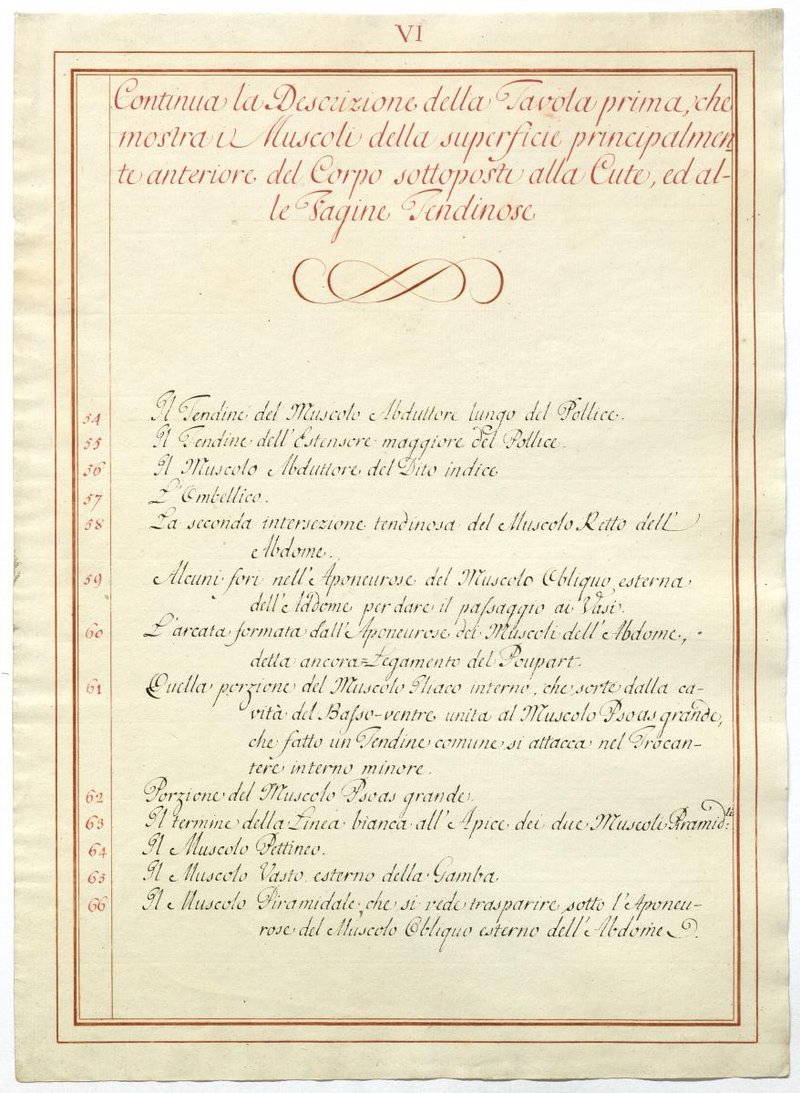 VI
Continua la Descrizione della Tavola prima, che
mostra i Muscoli della superficie principalmen-
te anteriore del Corpo sottoposti alla Cute, ed al-
le Vagine Tendinose
54 Il Tendine del Muscolo Abduttore lungo del Pollice.
55 Il Tendine dell'Estensore maggiore del Pollice.
56 Il Muscolo Abduttore del Dito indice
57 L'Ombellico.
58 La seconda intersezione tendinosa del Muscolo Retto dell'
Abdome.
59 Alcuni fori nell'Aponeurose del Muscolo Obliquo esterna
dell'Addome per dare il passaggio ai Vasi.
60 L'arcata formata dall'Aponeurose dei Muscoli dell'Abdome,
detta ancora Legamento del Poupart.
61 Quella porzione del Muscolo Iliaco interno, che sorte dalla ca-
vità del Basso-ventre unita al Muscolo Psoas grande,
che fatto un Tendine comune si attacca nel Trocan-
tere interno minore.
62 Porzione del Muscolo Psoas grande.
63 Il termine della Linea bianca all'Apice dei due Muscoli Piramid:li
64 Il Muscolo Pettineo.
65 Il Muscolo Vasto esterno della Gamba
66 Il Muscolo Piramidale, che si vede trasparire sotto l'Aponeu-
rose del Muscolo Obliquo esterno dell'Abdome.